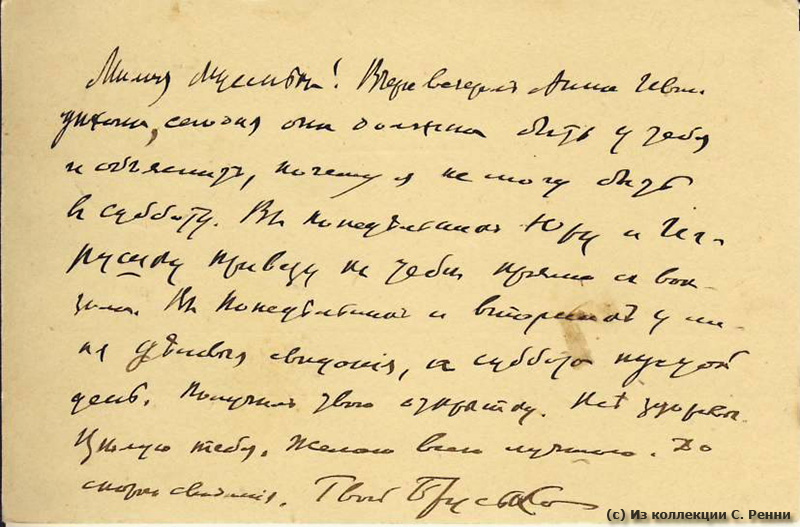 Милая Мусинька! Вчера вечеромъ Анна
уѣхала, сегодня она должна быть у тебя
и объяснитъ, почему я не могу быть
въ субботу. Въ понедѣльникъ Юру и
привезу къ тебѣ прямо съ вок-
зала. Въ понедѣльникъ и вторникъ у ме-
ня дѣловыя свиданія, а суббота пустой
день. Получилъ твою открытку. Всѣ здоровы.
Цѣлую тебя. Желаю всего лучшаго. До
скораго свиданія. Твой
(c) Из коллекции С. Ренни